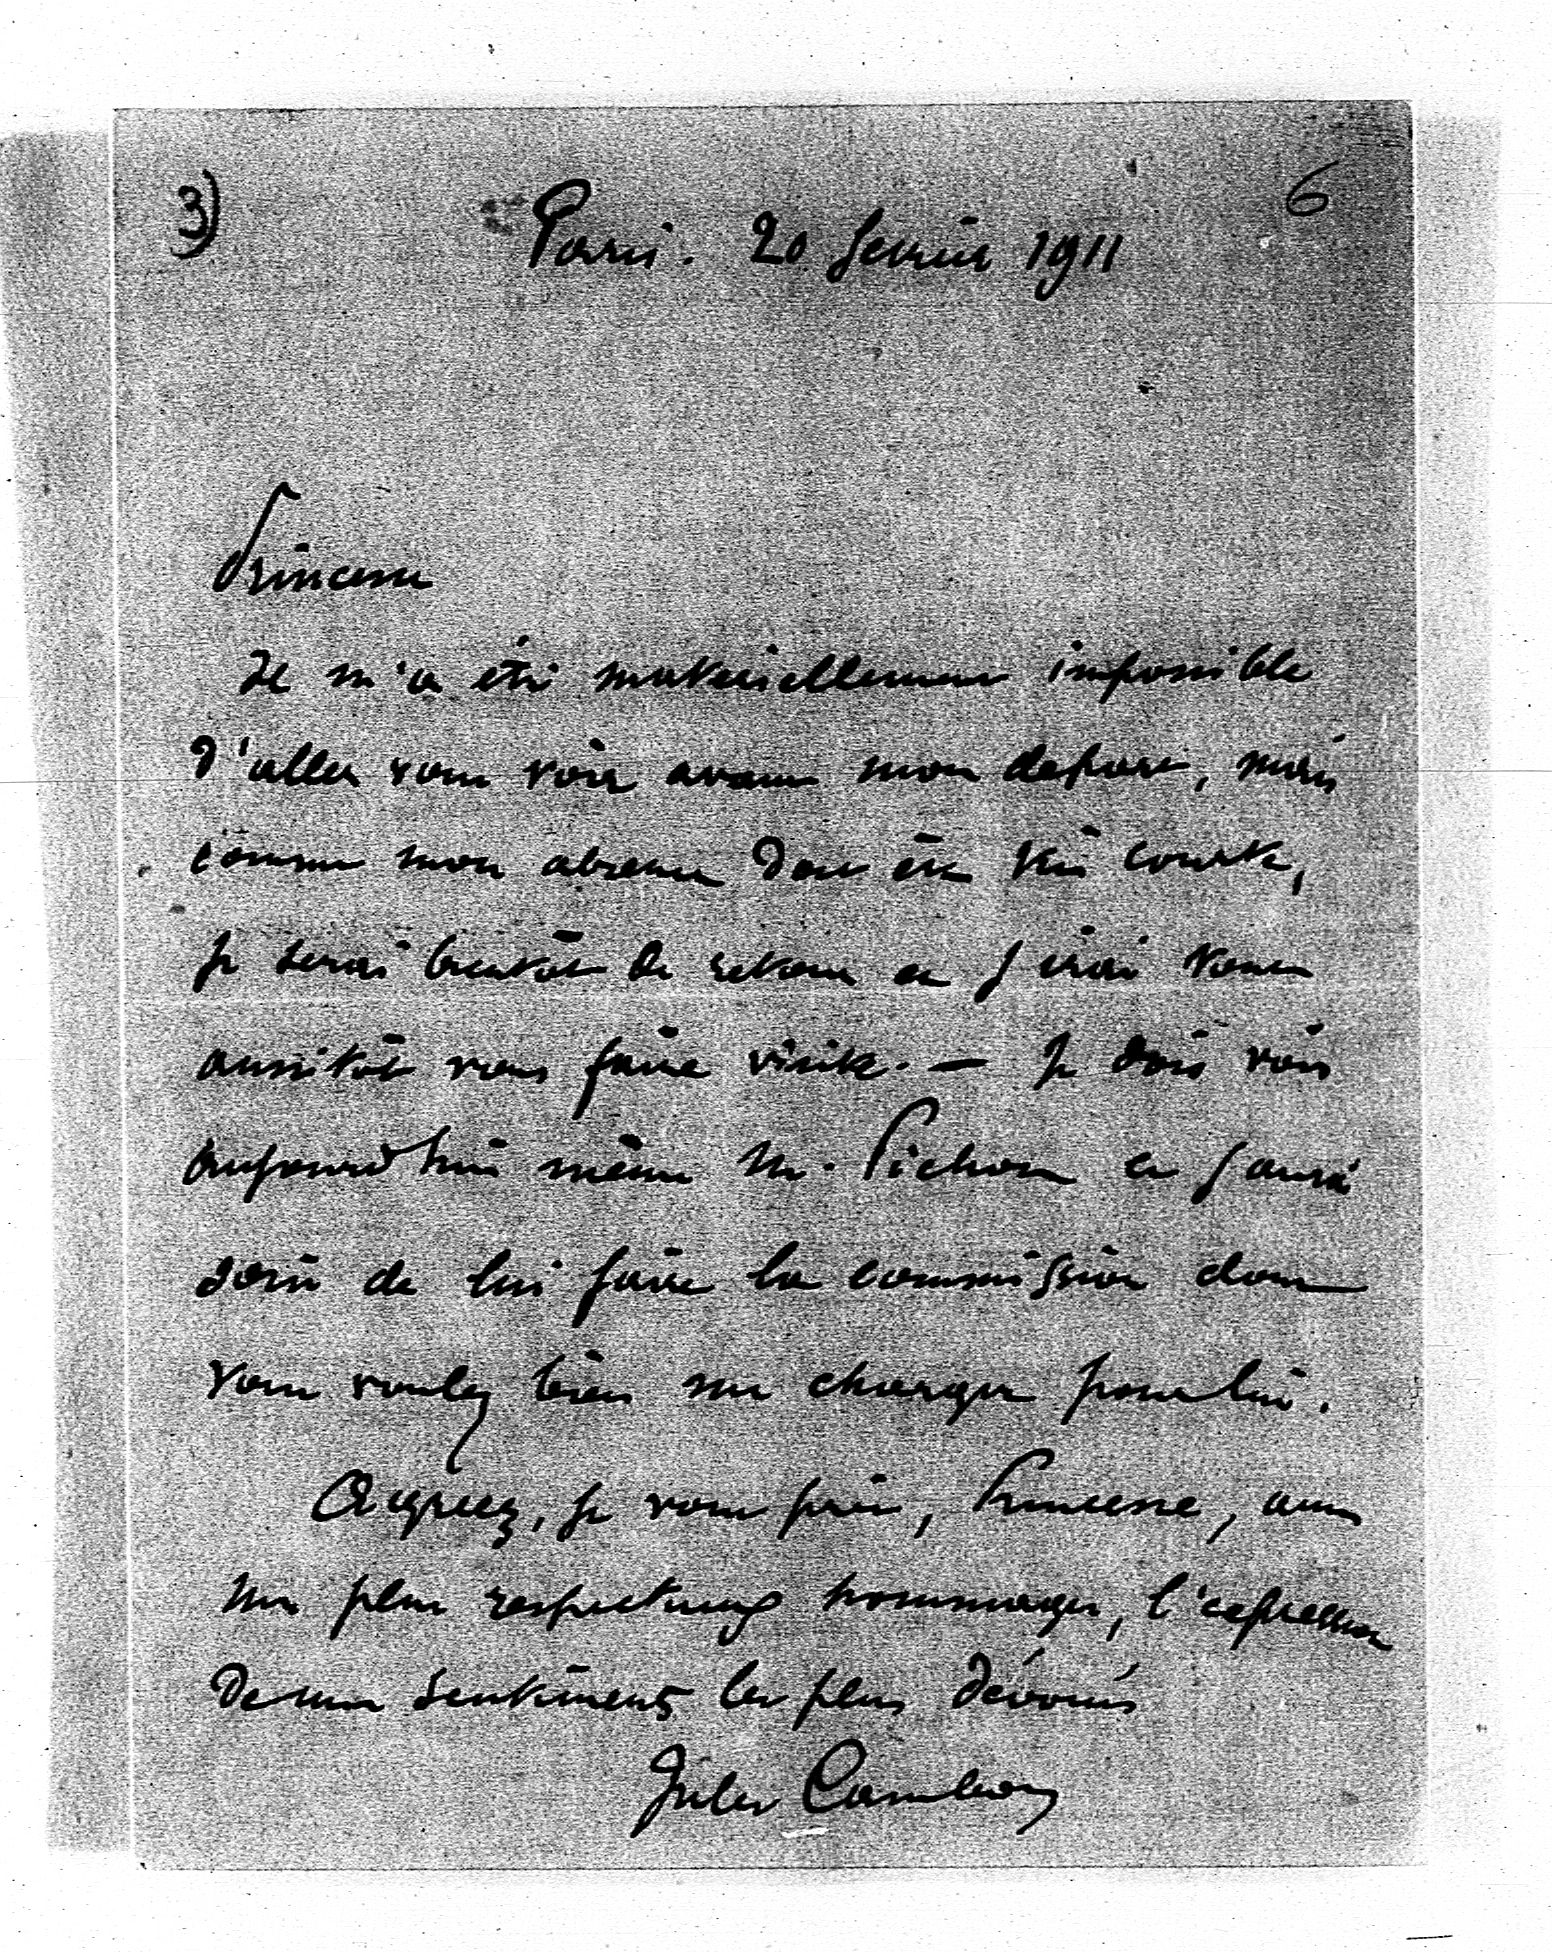 3)
6
Paris. 20 fevrier 1911
Princesse
Il m'a été matériellement impossible
d'aller vous voir avant mon départ, mais
comme mon absence doit être très courte,
je serai bientôt de retour et j'irai
aussitôt vous faire visite. — Je dois voir
aujourd'hui même M. Pichon et j'aurai
soin de lui faire la commission dont
vous voulez bien me charger pour lui.
Agréez, je vous prie, Princesse, avec
mes plus respectueux hommages, l'expression
de mes sentiments les plus dévoués
Jules Cambon